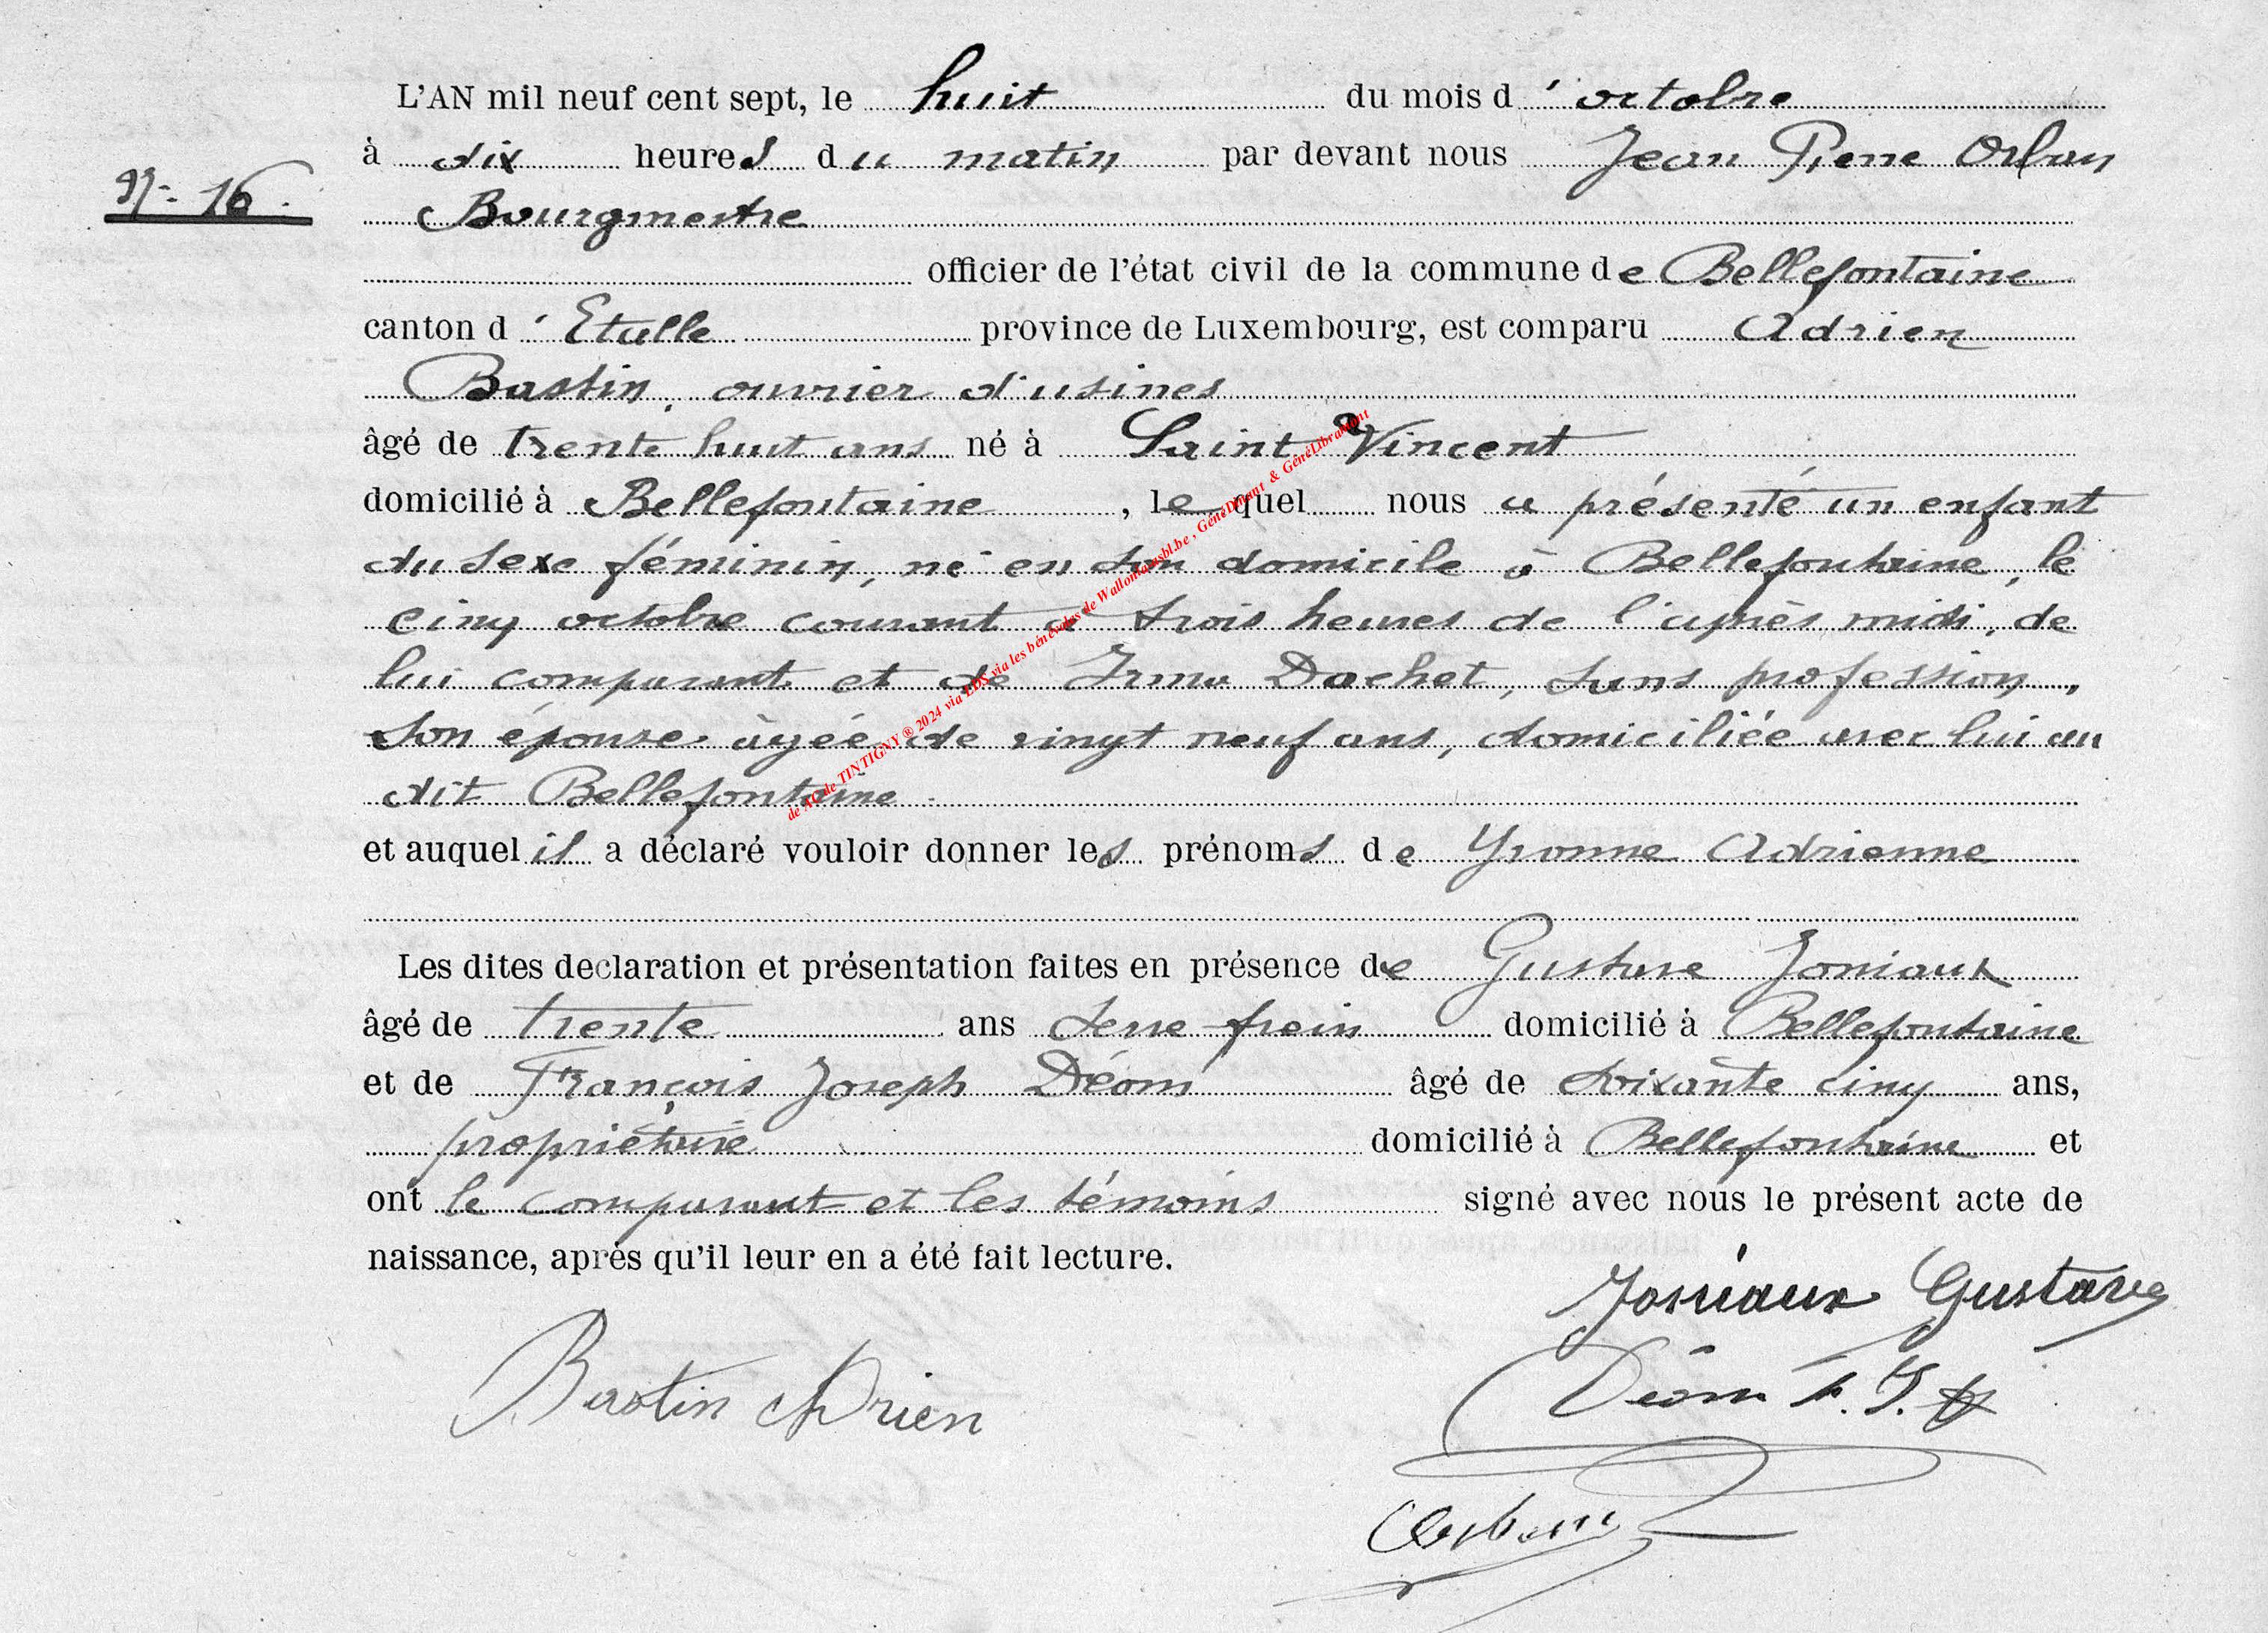 L'AN mil neuf cent sept, le huit du mois d'octobre
à dix heures du matin par devant nous Jean Pierre Orban
N°- 16.
Bourgmestre
officier de l'état civil de la commune de Bellefontaine
canton d'Etalle province de Luxembourg, est comparu Adrien
Bastin, ouvrier d'usines
âgé de trente huit ans né à Saint Vincent
domicilié à Bellefontaine, lequel nous a présenté un enfant
du sexe féminin, né en son domicile à Bellefontaine, le
cinq octobre courant à trois heures de l'après midi, de
lui comparant et de Irma Dachet, sans profession,
son épouse âgée de vingt neuf ans, domiciliée avec lui au
dit Bellefontaine.
et auquel il a déclaré vouloir donner les prénoms de Yvonne Adrienne
Les dites declaration et présentation faites en présence de Gustave Joniaux
âgé de trente ans serre frein domicilié à Bellefontaine
et de François Joseph Déom âgé de soixante cinq ans,
propriétaire domicilié à Bellefontaine et
ont le comparant et les témoins signé avec nous le présent acte de
naissance, après qu'il leur en a été fait lecture.
Joniaux Gustave
Bastin Adrien
Déom F. J.
Orban
de AC de TINTIGNY ® 2024 via LDS via les bénévoles de Wallonia asbl.be , GénéDinant & GénéLibramont